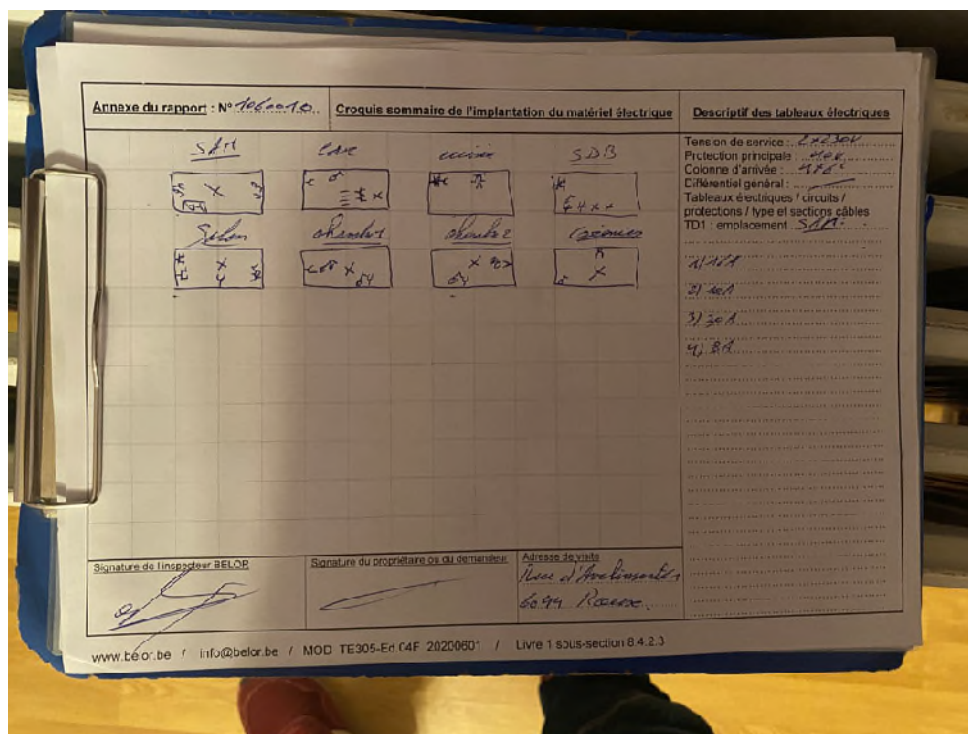 Annexe du rapport : N° 1060010
Croquis sommaire de l'implantation du matériel électrique
Descriptif des tableaux électriques
SAM Cave cuisine SDB
Salon chambre1 chambre2
Tension de service : 2x230V
Protection principale : 40A
Colonne d'arrivée :
Différentiel général :
Tableaux électriques / circuits /
protections / type et sections câbles
TD1 : emplacement SAM
1) 16A
2)
3) 20A
4) 8A
Signature de l'inspecteur BELOR
Signature du propriétaire ou du demandeur
Adresse de visite
Rue
6044 Roux
www.belor.be / info@belor.be / MOD TE305-Ed.04F 20200601 / Livre 1 sous-section 8.4.2.3